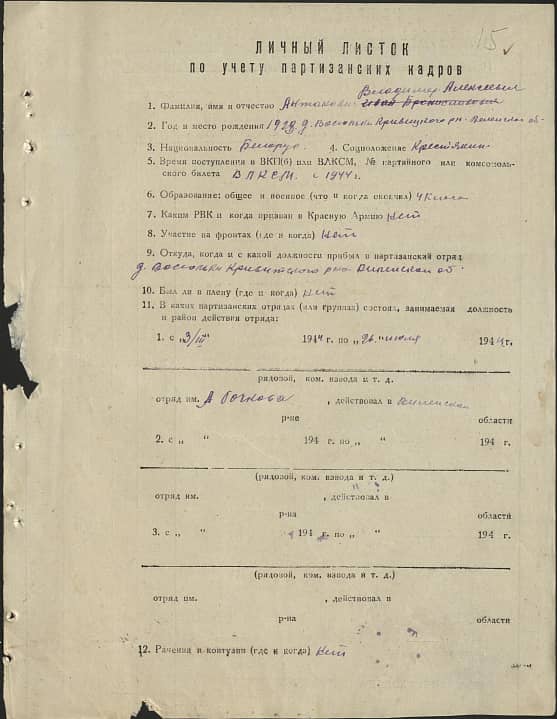 15
ЛИЧНЫЙ ЛИСТОК
по учету партизанских кадров
Владимир Алексеевич
1. Фамилия, имя и отчество
2. Год и место рождения 1928 д. Васюльки Кривичского р-н. Виленской об-
3. Национальность Белорус 4. Соцположение Крестьянин
5. Время поступления в ВКП(б) или ВЛКСМ, № партийного или комсомоль-
ского билета ВЛКСМ с 1944 г.
6. Образование: общее и военное (что и когда окончил) 4 класса
7. Каким РВК и когда призван в Красную Армию Нет
8. Участие на фронтах (где и когда) Нет
9. Откуда, когда и с какой должности прибыл в партизанский отряд
д. Васюльки Кривичского р-на Виленской об-
10. Был ли в плену (где и когда) Нет
11. В каких партизанских отрядах (или группах) состоял, занимаемая должность
и район действия отряда:
1. с „3/III“ 1944 г. по „26“ июля 1944 г.
рядовой, ком. взвода и т. д.
отряд им. , действовал в Виленской
р-не области
2. с „ “ 194 г. по „ “ 194 г.
(рядовой, ком. взвода и т. д.)
отряд им. , действовал в
р-на области
3. с „ “ 194 г. по „ “ 194 г.
(рядовой, ком. взвода и т. д.)
отряд им. , действовал в
р-на области
12. Ранения и контузии (где и когда) Нет